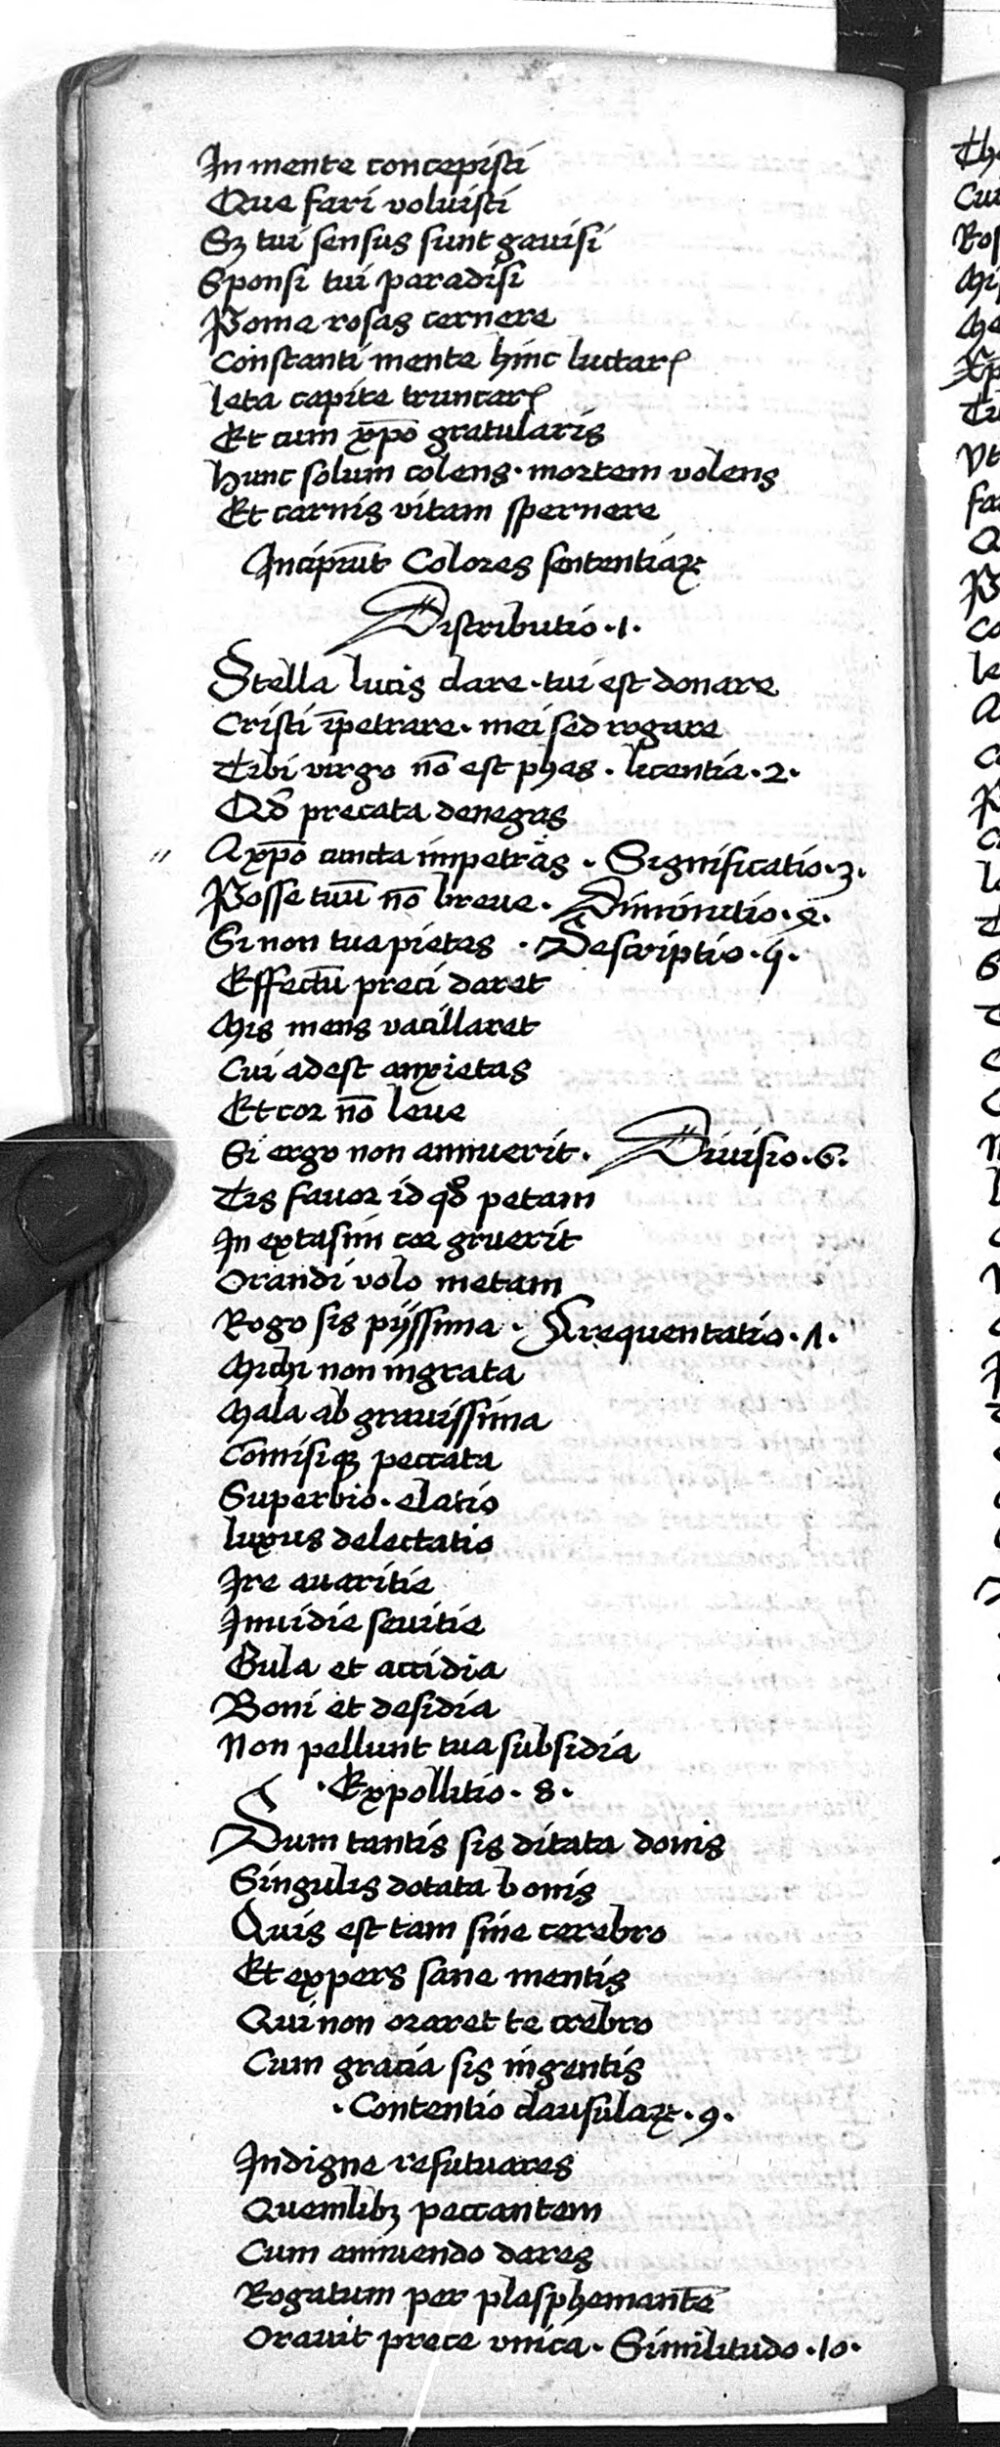 In mente concepisti
Que fari voluisti
Sꝫ tui sensus sunt gauisi
Sponsi tui paradisi
Poma rosas cernere
Constanti mente hinc luctarꝭ
leta capite truncarꝭ
Et cum xp̄o gratularis
hunc solum colens · mortem volens
Et carnis vitam spernere
Incipiūt Colores sententiaꝝ
Distributio · 1 ·
Stella lucis clare · tui est donare
Cristi īpetrare · mei sed rogare
Tibi virgo nō est phas · licentia · 2 ·
Qđ precata denegas
A xp̄o cuncta impetras · Significatio · 3 ·
Posse tuū nō breue · Diminutio · 4 ·
Si non tua pietas · Descriptio · 5 ·
Effectū preci daret
Mis mens vacillaret
Cui adest anxietas
Et cor nō leue
Si ergo non annuerit · Diuisio · 6 ·
Tis fauor id qđ petam
In extasim cor gruerit
Orandi volo metam
Rogo sis pijssima · Frequentatio · 7 ·
Michi non ingrata
Mala ab grauissima
Cōmisiqꝫ peccata
Superbio · elatio
luxus delectatio
Ire auaritie
Inuidie seuitie
Gula et accidia
Boni et desidia
Non pellunt tua subsidia
· Expollitio · 8 ·
Dum tantis sis ditata donis
Singulis dotata bonis
Quis est tam sine cerebro
Et expers sane mentis
Qui non oraret te crebro
Cum gracia sis ingentis
· Contentio clausulaꝝ · 9 ·
Indigne refutuares
Quemlibꝫ peccantem
Cum annuendo dares
Rogatum per plasphemantē
Orauit prece vnica · Similitudo · 10 ·